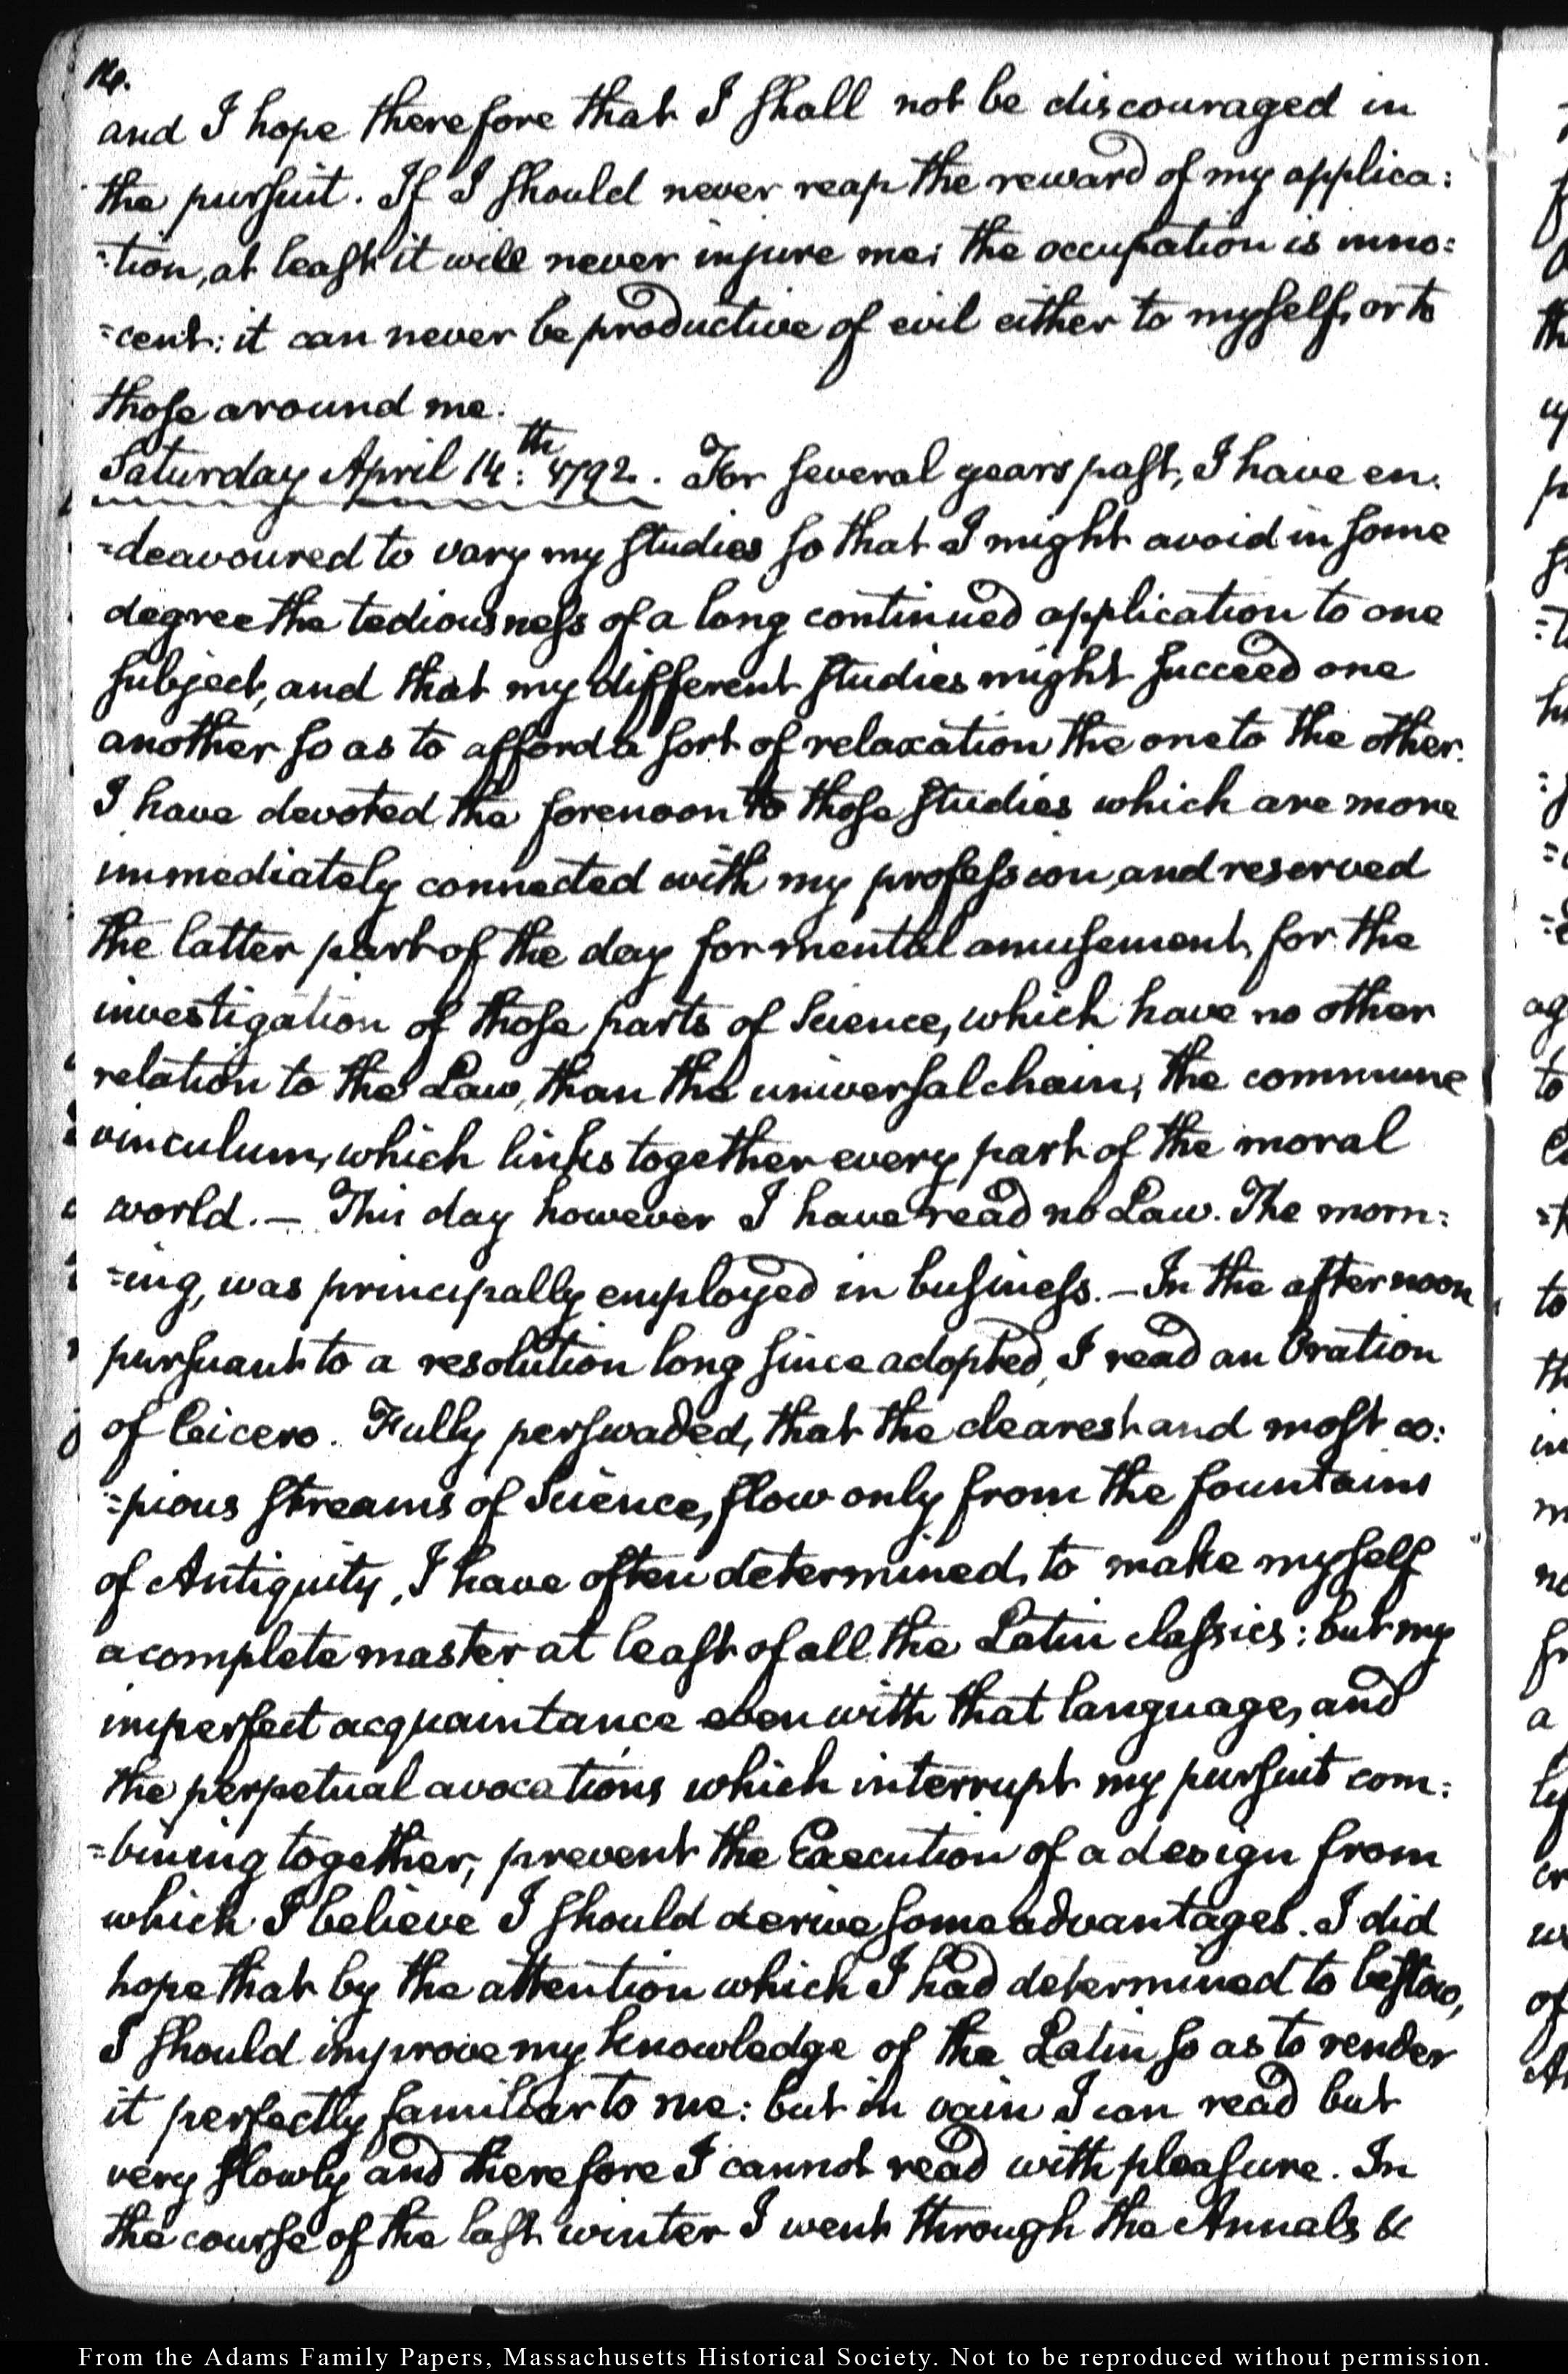 14.
and I hope therefore that I shall not be discouraged in
the pursuit. If I should never reap the reward of my applica:
=tion, at least it will never injure me; the occupation is inno:
=cent: it can never be productive of evil either to myself, or to
those around me.
Saturday April 14:th 1792. For several years past, I have en:
=deavoured to vary my studies so that I might avoid in some
degree the tediousness of a long continued application to one
subject, and that my different studies might succeed one
another so as to afford a sort of relaxation the one to the other.
I have devoted the forenoon to those studies which are more
immediately connected with my profession, and reserved
the latter part of the day for mental amusement, for the
investigation of those parts of Science, which have no other
relation to the Law, than the universal chain, the commune
vinculum, which links together every part of the moral
world. — This day however I have read no Law. The morn:
=ing, was principally employed in business. — In the afternoon
pursuant to a resolution long since adopted, I read an Oration
of Cicero. Fully perswaded, that the clearest and most co:
=pious streams of Science, flow only from the fountains
of Antiquity, I have often determined, to make myself
a complete master at least of all the Latin classics: but my
imperfect acquaintance even with that language, and
the perpetual avocations which interrupt my pursuit com:
=bining together, prevent the Execution of a design from
which I believe I should derive some advantages. I did
hope that by the attention which I had determined to bestow,
I should improve my knowledge of the Latin so as to render
it perfectly familiar to me: but in vain I can read but
very slowly and therefore I cannot read with pleasure. In
the course of the last winter I went through the Annals &
From the Adams Family Papers, Massachusetts Historical Society. Not to be reproduced without permission.